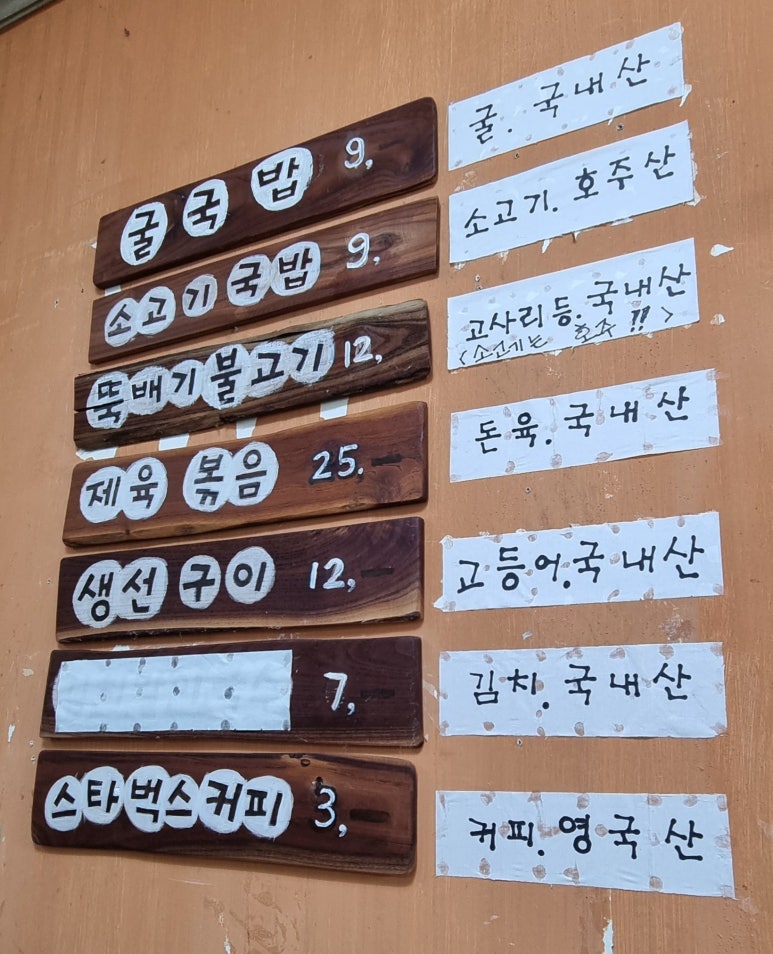 굴국밥 9,
굴. 국내산
소고기국밥 9,
소고기. 호주산
뚝배기불고기 12,
고사리등.국내산
<소고기는 호주 !!>
제육 볶음 25.-
돈육.국내산
생선 구이 12,-
고등어.국내산
7,-
김치.국내산
스타벅스커피 3,-
커피.영국산